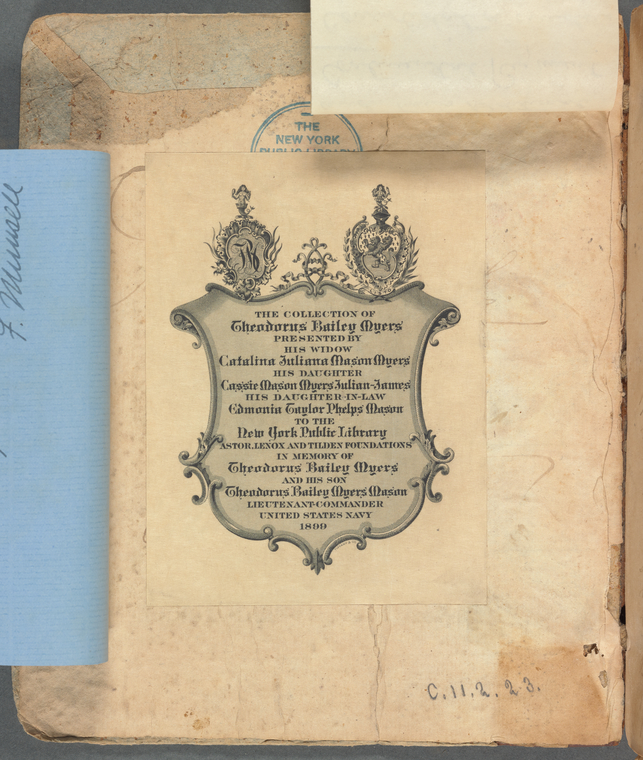 THE
NEW YORK
PUBLIC LIBRARY
THE COLLECTION OF
Theodorus Bailey Myers
PRESENTED BY
HIS WIDOW
Catalina Juliana Mason Myers
HIS DAUGHTER
Cassie Mason Myers Julian-James
HIS DAUGHTER-IN-LAW
Edmonia Taylor Phelps Mason
TO THE
New York Public Library
ASTOR, LENOX AND TILDEN FOUNDATIONS
IN MEMORY OF
Theodorus Bailey Myers
AND HIS SON
Theodorus Bailey Myers Mason
LIEUTENANT-COMMANDER
UNITED STATES NAVY
1899
F. Munsell
C.11.2.23.